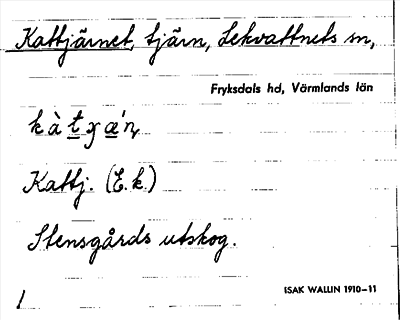 Kattjärnet, tjärn, Lekvattnets sn,
Fryksdals hd, Värmlands län
kàtɟæ'ɳ
Kattj. (E.k.)
Stensgårds utskog.
1
ISAK WALLIN 1910–11